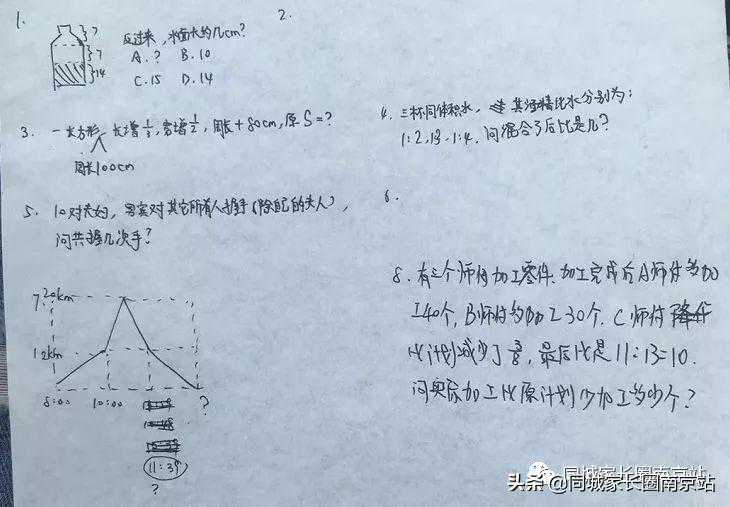 1.
7
7
14
反过来，水面大约几cm？
A. ? B. 10
C. 15 D. 14
2.
3. 一长方形，长增1/3，宽增1/2，周长+80cm，原S=？
周长100cm
4. 三杯同体积水，其酒精比水分别为：
1:2, 1:3, 1:4. 问混合了后比是几？
5. 10对夫妇，男宾对其它所有人握手（除自己的夫人），
问共握几次手？
6.
7.
20km
12km
8:00 10:00 ?
11:39
?
8. 有三个师傅加工零件，加工完成后A师傅多加
工40个，B师傅多加工30个，C师傅
比计划减少了3/8，最后比是11:13=10.
问实际加工比原计划少加工多少个？
同城家长圈南京站
头条@同城家长圈南京站